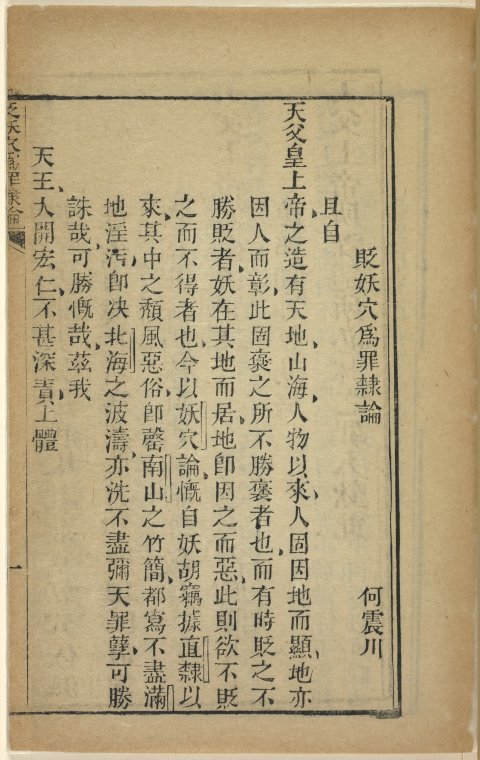 貶妖穴爲罪隸論
何震川
且自
天父皇上帝之造有天地山海人物以來人固因地而顯地亦
因人而彰此固褒之所不勝褒者也而有時貶之不
勝貶者妖在其地而居地卽因之而惡此則欲不貶
之而不得者也今以妖穴論慨自妖胡竊據直隸以
來其中之頹風惡俗卽罄南山之竹簡都寫不盡滿
地淫汚卽决北海之波濤亦洗不盡彌天罪孽可勝
誅哉可勝慨哉茲我
天王大開宏仁不甚深責上體
貶妖穴爲罪隸論
一